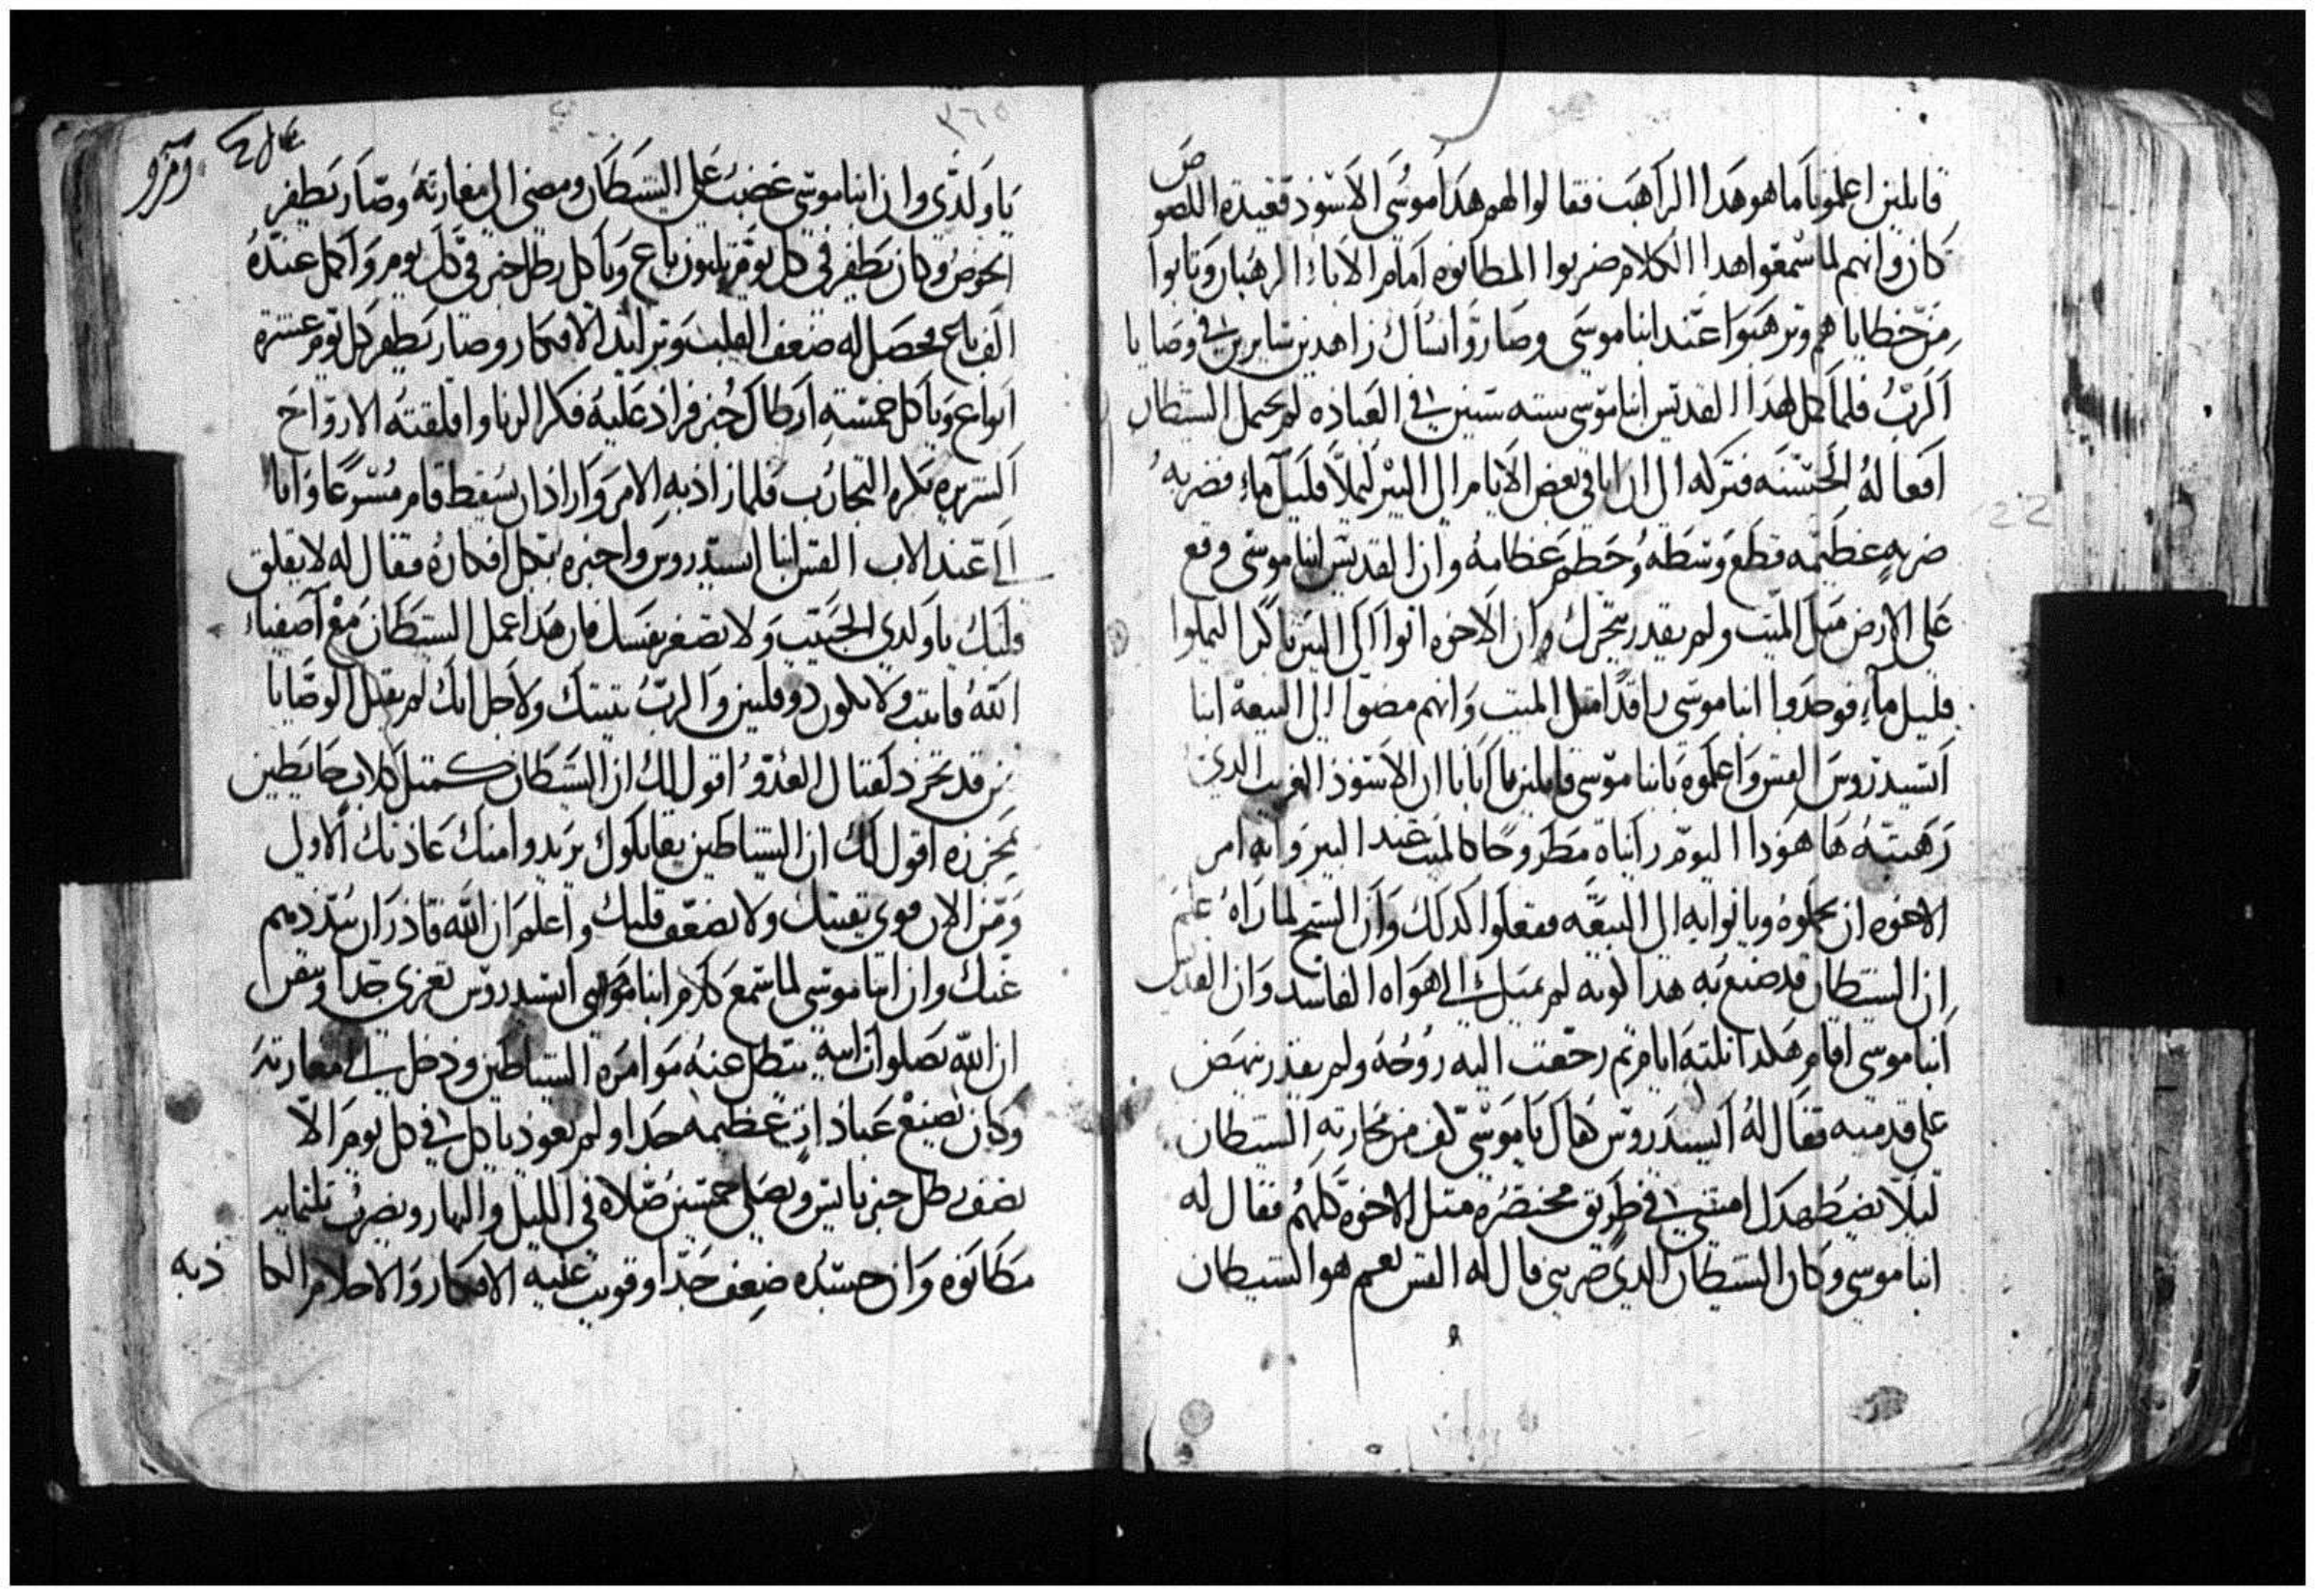 قايلين اعلمونا ما هو هدا الراهب فقالوا لهم هدا موسى الاسود فعيده اللصوص
كان وانهم لما سمعوا هدا الكلام ضربوا المطانوه امام الاباء الرهبان وتابوا
من خطاياهم وترهبوا عند انبا موسى وصاروا نساك زاهدين سايرين في وصايا
الرب فلما كمل لهدا القديس انبا موسى سته سنين في العباده لم يحمل الشيطان
افعاله الحسنه فتركه الى ان اتا في بعض الايام الى البير ليملا قليل ماء فضربه
ضربه عظيمه قطع وسطه وحطم عظامه وان القديس انبا موسى وقع
على الارض متل الميت ولم يقدر يتحرك وان الاخوه اتوا الى البير باكرا ليملوا
قليل ماء فوجدوا انبا موسى راقدا متل الميت وانهم مضوا الى البيعه انبا
اسيدروس القس واعلموه بانبا موسى قايلين يا ابانا ان الاسود الغريب الدي
رهبته ها هودا اليوم رايناه مطروحا كالميت عند البير وانه امر
الاخوه ان يحملوه وياتوا به الى البيعه ففعلوا كدلك وان الشيخ لما راه علم
ان الشيطان قد صنع به هدا لونه لم يميل الى هواه الفاسد وان القديس
انبا موسى اقام هكدا تلته ايام تم رجعت اليه روحه ولم يقدر ينهض
على قدميه فقال له اسيدروس هال يا موسى كف من محاربه الشيطان
ليلا يضطهدك امشي في طريق مختصره متل الاخوه كلهم فقال له
انبا موسى وكان الشيطان الدي ضربني قال له القس نعم هو الشيطان
٣٦٥
يا ولدي وان انبا موسى غضب على الشيطان ومضى الى مغارته وصار يطفر
الحوض وكان يطفر في كل يوم تلتون باع وياكل رطل خبز في كل يوم واكمل عنده
الف باع فحصل له ضعف القلب وتزايد الافكار وصار يطفر كل يوم عشرة
ابواع وياكل خمسة ارطال خبز فزاد عليه فكر الزنا واقلقته الارواح
الشريره بكثره التجارب فلما زاد به الامر واراد ان يسقط قام مسرعا واتا
الى عند الاب القس انبا اسيدروس واخبره بكل افكاره فقال له لا يقلق
قلبك يا ولدي الحبيب ولا تصغر نفسك فان هدا عمل الشيطان مع اصفياء
الله فاتبت ولا تكون دو قلبين والرب يتبتك ولاجل انك لم تقبل الوصايا
قد تجرد لقتال العدو اقول لك ان الشيطان كمتل كلاب حايطين
بمجزره اقول لك ان الشياطين يقاتلوك يريدوا منك عادتك الاولى
ومن الان قوي نفسك ولا تضعف قلبك واعلم ان الله قادر ان يشرد دمهم
عنك وان انبا موسى لما سمع كلام انبا اسيدروس تعزى جدا وتيقن
ان الله بصلوات ابيه يبطل عنه موامره الشياطين ودخل الى مغارته
وكان يصنع عبادات عظيمه جدا ولم يعود ياكل في كل يوم الا
نصف رطل خبز يابس ويصلي خمسين صلاه في الليل والنهار ويضرب تلتمايه
مطانوه وان جسده ضعف جدا وقويت عليه الافكار والاحلام الكا
دبه